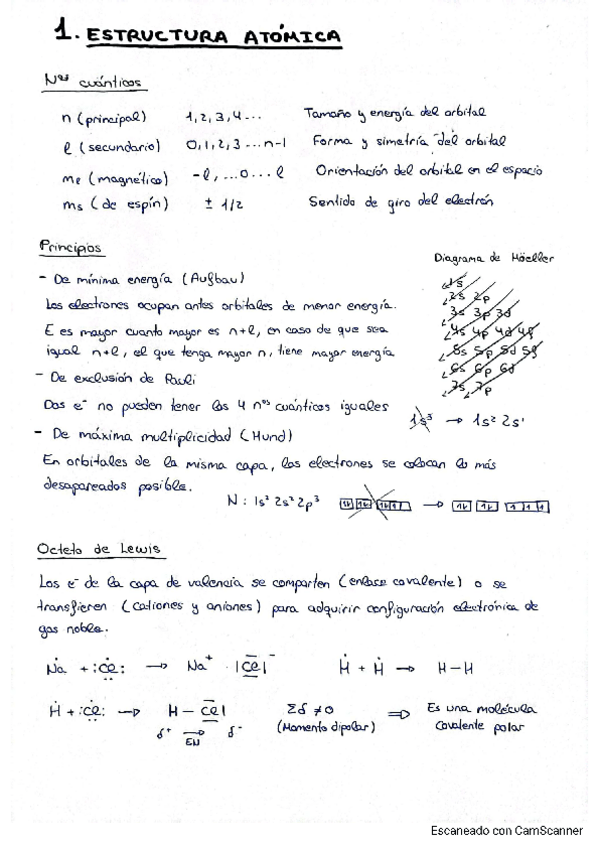 1. ESTRUCTURA ATÓMICA
Nos cuánticos
n (principal) 1, 2, 3, 4... Tamaño y energía del orbital
l (secundario) 0, 1, 2, 3 ... n-1 Forma y simetría del orbital
ml (magnético) -l, ...0... l Orientación del orbital en el espacio
ms (de espín) ± 1/2 Sentido de giro del electrón
Principios
Diagrama de Möeller
- De mínima energía (Aufbau)
Los electrones ocupan antes orbitales de menor energía.
E es mayor cuanto mayor es n+l, en caso de que sea
igual n+l, el que tenga mayor n, tiene mayor energía
1s
2s 2p
3s 3p 3d
4s 4p 4d 4f
5s 5p 5d 5f
6s 6p 6d
7s 7p
- De exclusión de Pauli
Dos e⁻ no pueden tener los 4 nos cuánticos iguales
1s³ → 1s² 2s¹
- De máxima multiplicidad (Hund)
En orbitales de la misma capa, los electrones se colocan lo más
desapareados posible.
N: 1s² 2s² 2p³ →
Octeto de Lewis
Los e⁻ de la capa de valencia se comparten (enlace covalente) o se
transfieren (cationes y aniones) para adquirir configuración electrónica de
gas noble.
Na + :Cl: → Na⁺ |Cl|⁻ H + H → H-H
H + :Cl: → H - Cl| Σδ ≠ 0 ⇒ Es una molécula
δ⁺ → δ⁻ (Momento dipolar) covalente polar
EN
Escaneado con CamScanner